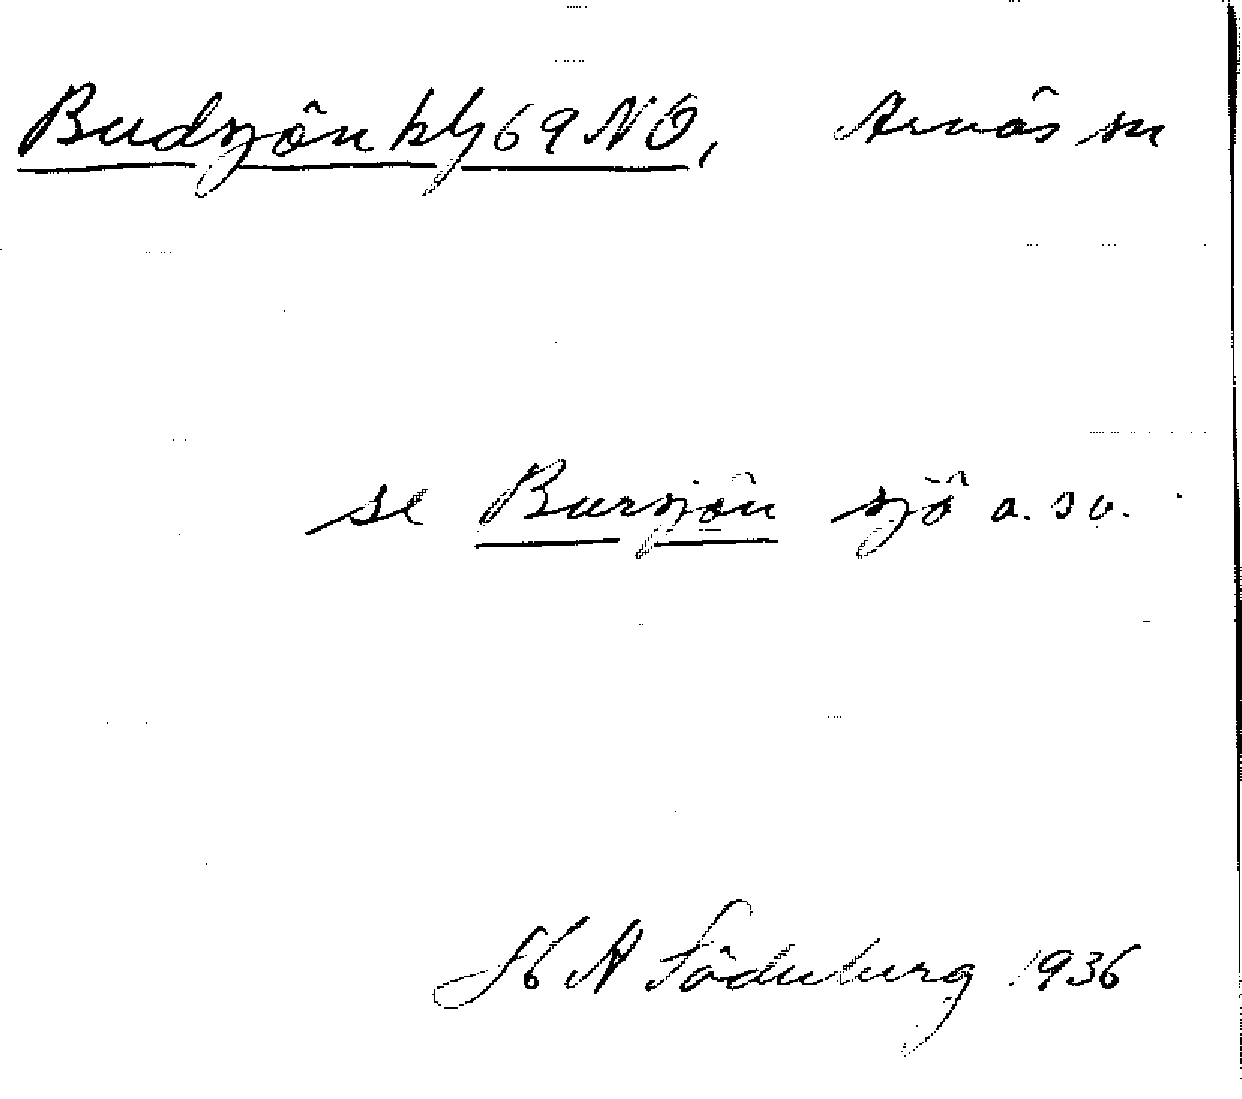 Budsjön kbl 69 NO, Arnäs sn
se Bursjön sjö a. so.
H A Söderberg 1936